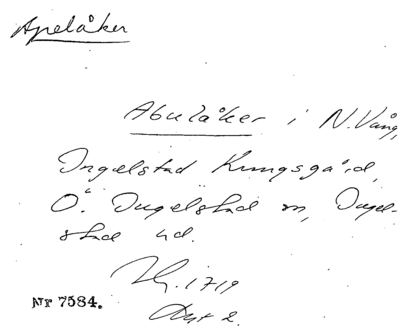 Apelåker
Abulåker i N. Vång,
Ingelstad Kungsgård,
Ö. Ingelstad sn, Ingel-
stad hd.
1719
Nr 7584.
Akt 2.